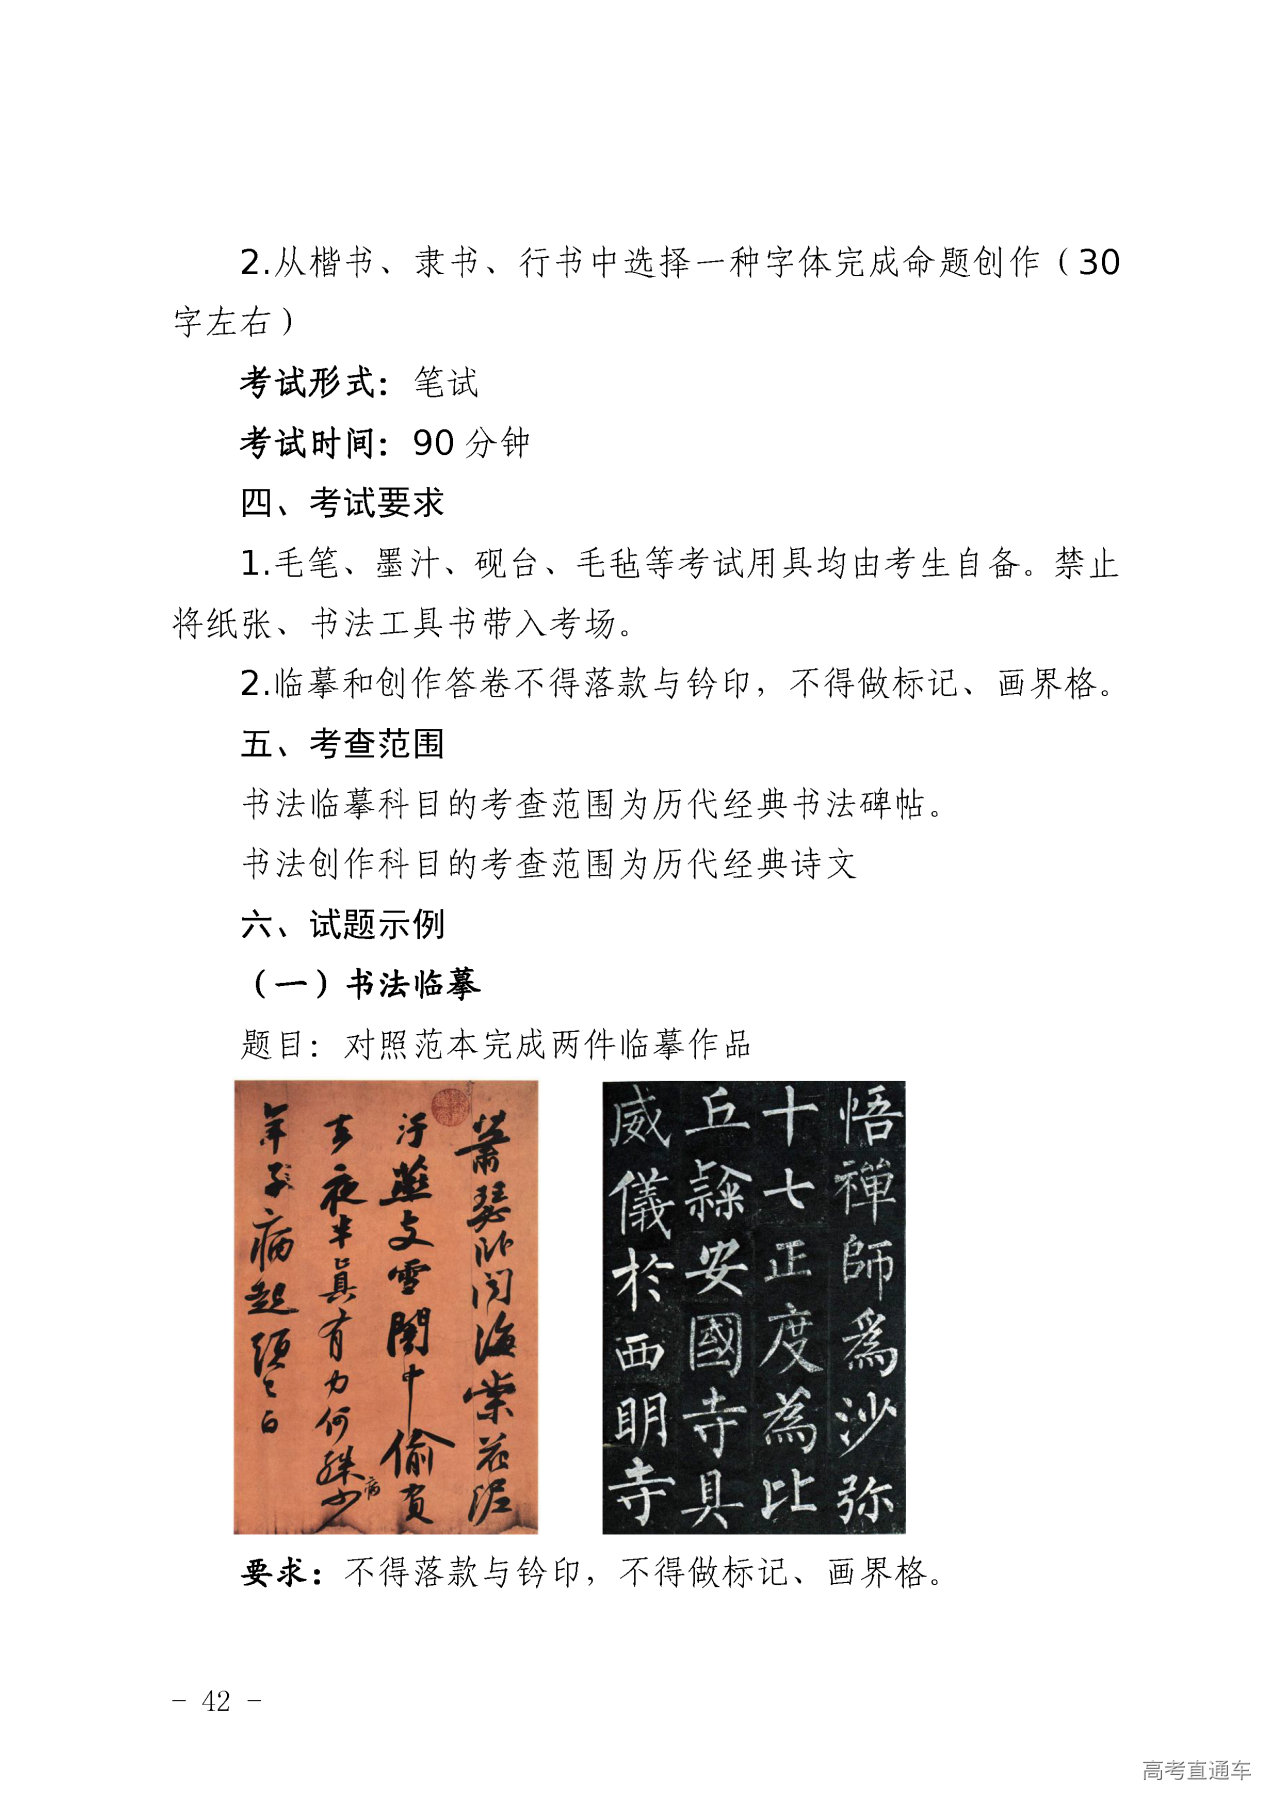 2.从楷书、隶书、行书中选择一种字体完成命题创作（30
字左右）
考试形式：笔试
考试时间：90 分钟
四、考试要求
1.毛笔、墨汁、砚台、毛毡等考试用具均由考生自备。禁止
将纸张、书法工具书带入考场。
2.临摹和创作答卷不得落款与钤印，不得做标记、画界格。
五、考查范围
书法临摹科目的考查范围为历代经典书法碑帖。
书法创作科目的考查范围为历代经典诗文
六、试题示例
（一）书法临摹
题目：对照范本完成两件临摹作品
萧瑟卧闻海棠花泥
污燕支雪闇中偷负
去夜半真有力何殊少
病
年子病起须已白
悟禪師為沙弥
十七正度為比
丘隸安國寺具
威儀於西明寺
要求：不得落款与钤印，不得做标记、画界格。
- 42 -
高考直通车